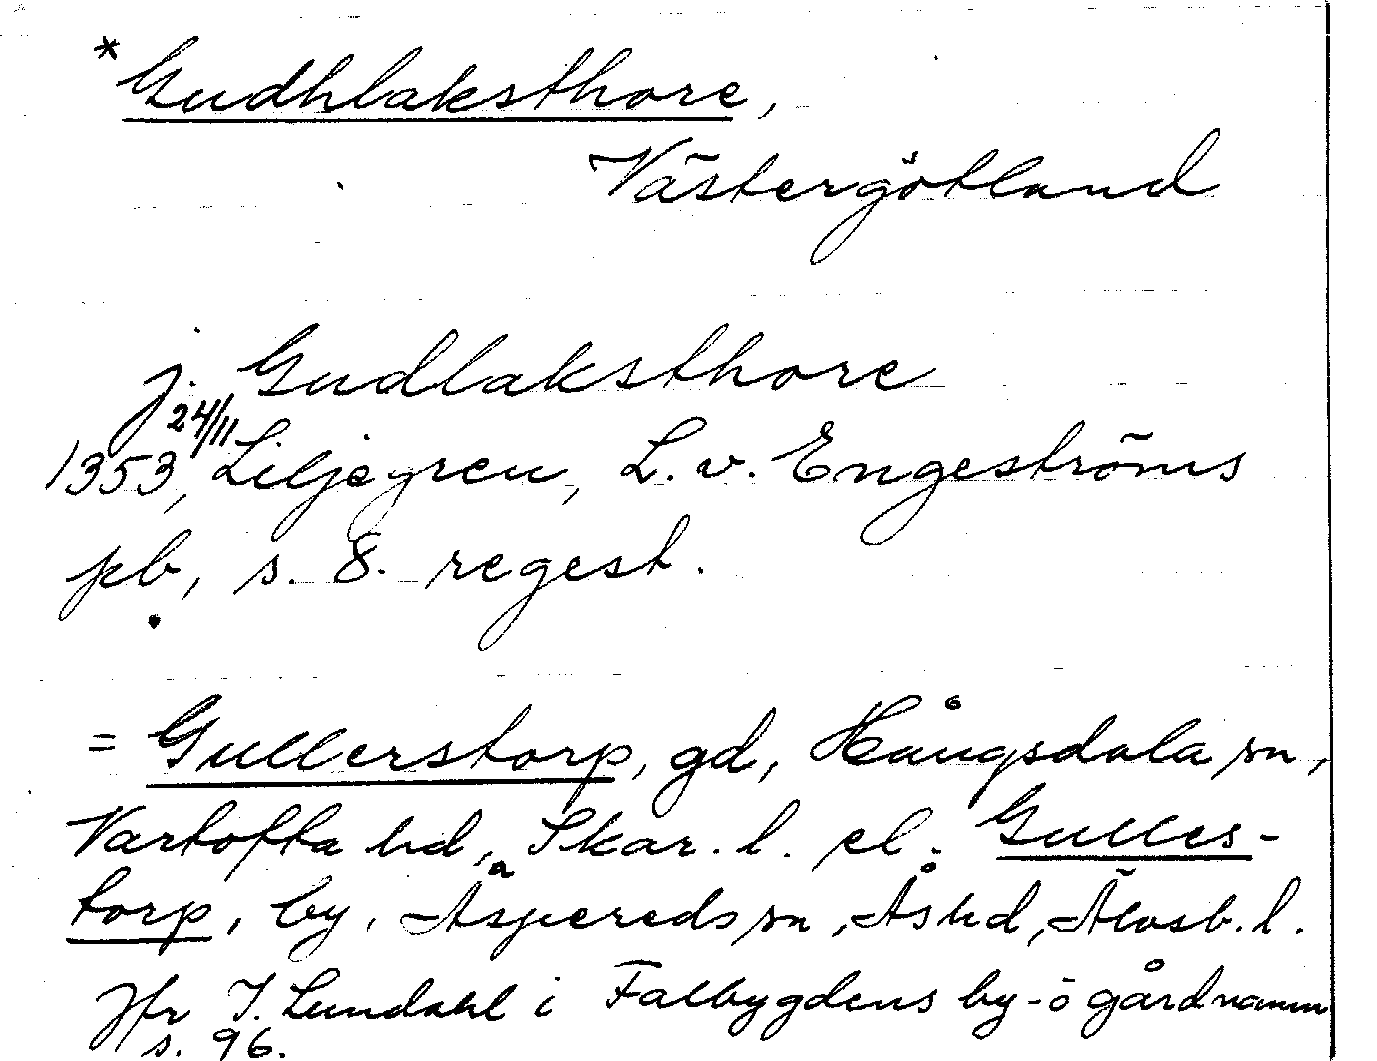 *Gudhlaksthore,
Västergötland
j. Gudlaksthore
1353 24/11, Liljegren, L. v. Engeströms
pb, s. 8. regest.
= Gullerstorp, gd, Hångsdala sn,
Vartofta hd, Skar. l. el. Gulles-
torp, by, Äspereds sn, Ås hd, Älvsb. l.
Jfr I. Lundahl i Falbygdens by- o gårdnamn
s. 96.